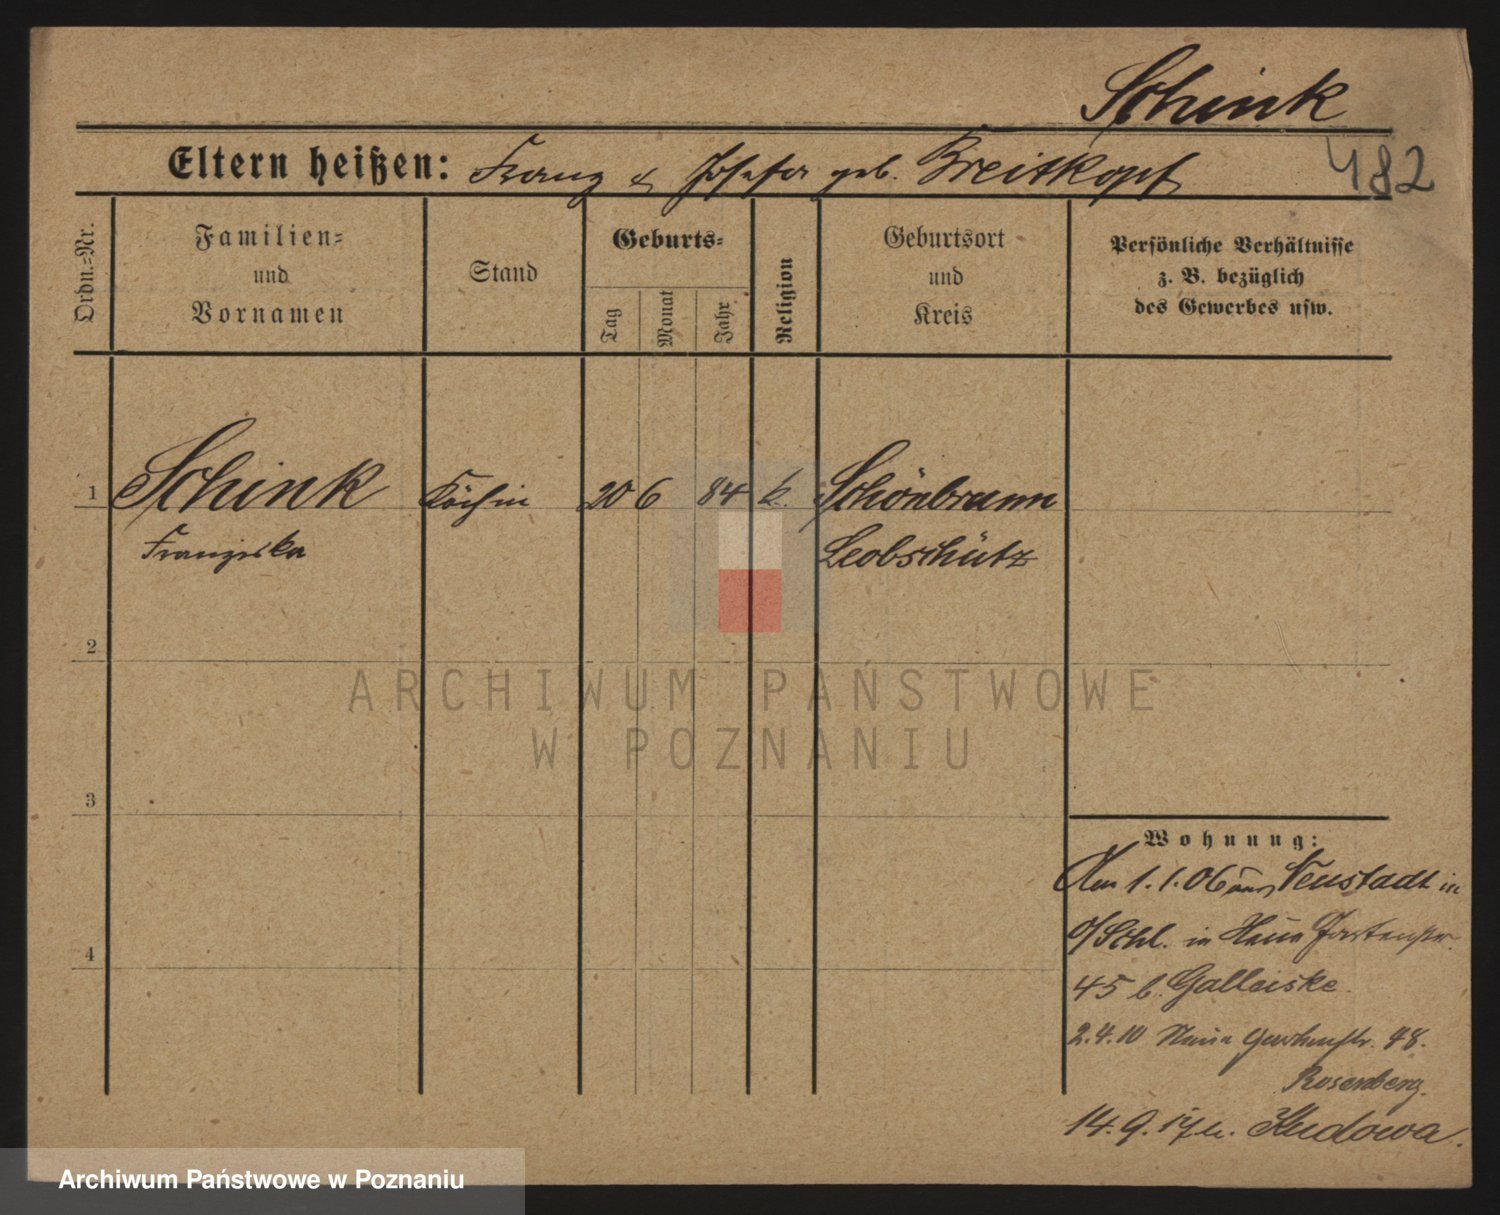 Schink
482
Eltern heißen: Franz & Josefa geb. Breitkopf
Ordn.-Nr.
Familien-
und
Vornamen
Stand
Geburts-
Tag
Monat
Jahr
Religion
Geburtsort
und
Kreis
Persönliche Verhältnisse
z. B. bezüglich
des Gewerbes usw.
1 Schink Köchin 20 6 84 k. Schönbrunn
Franziska Leobschütz
2
3
4
Wohnung:
Am 1.1.06 aus Neustadt in
O/Schl. in Neue Gartenstr.
45 b. Galleiske.
2.4.10 Neue Gartenstr. 48.
Rosenberg.
14.9.17 n. Kudowa.
ARCHIWUM PAŃSTWOWE
W POZNANIU
Archiwum Państwowe w Poznaniu